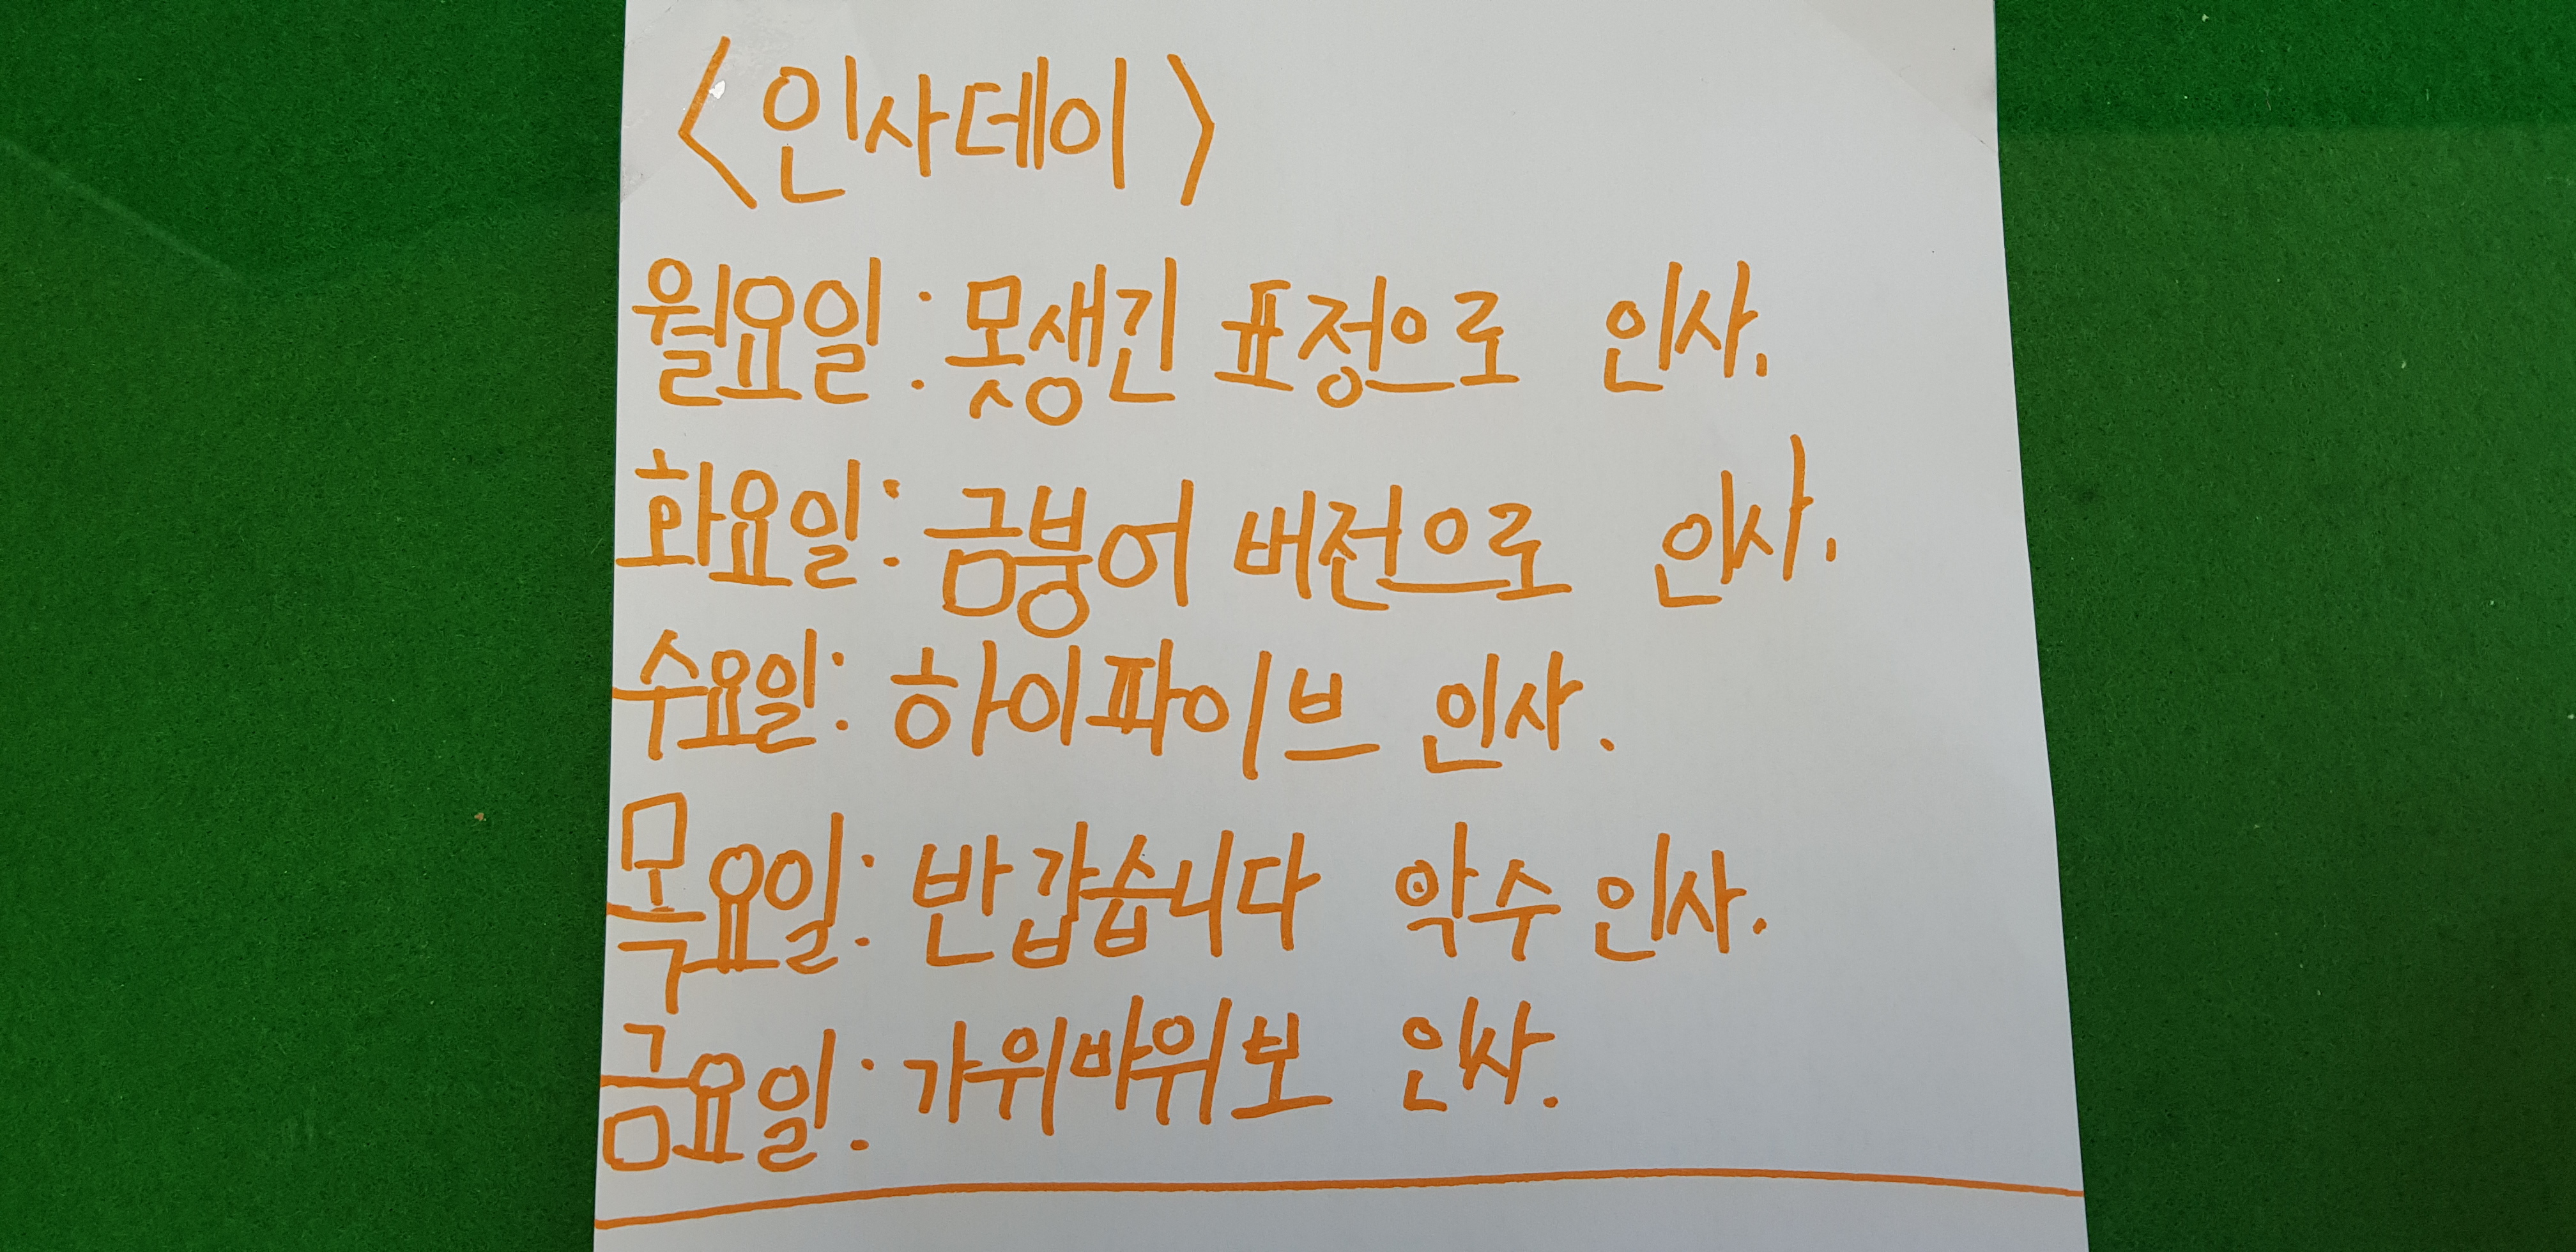 <인사데이>
월요일: 못생긴 표정으로 인사.
화요일: 굼벵이 버전으로 인사.
수요일: 하이파이브 인사.
목요일: 반갑습니다 악수 인사.
금요일: 가위바위보 인사.